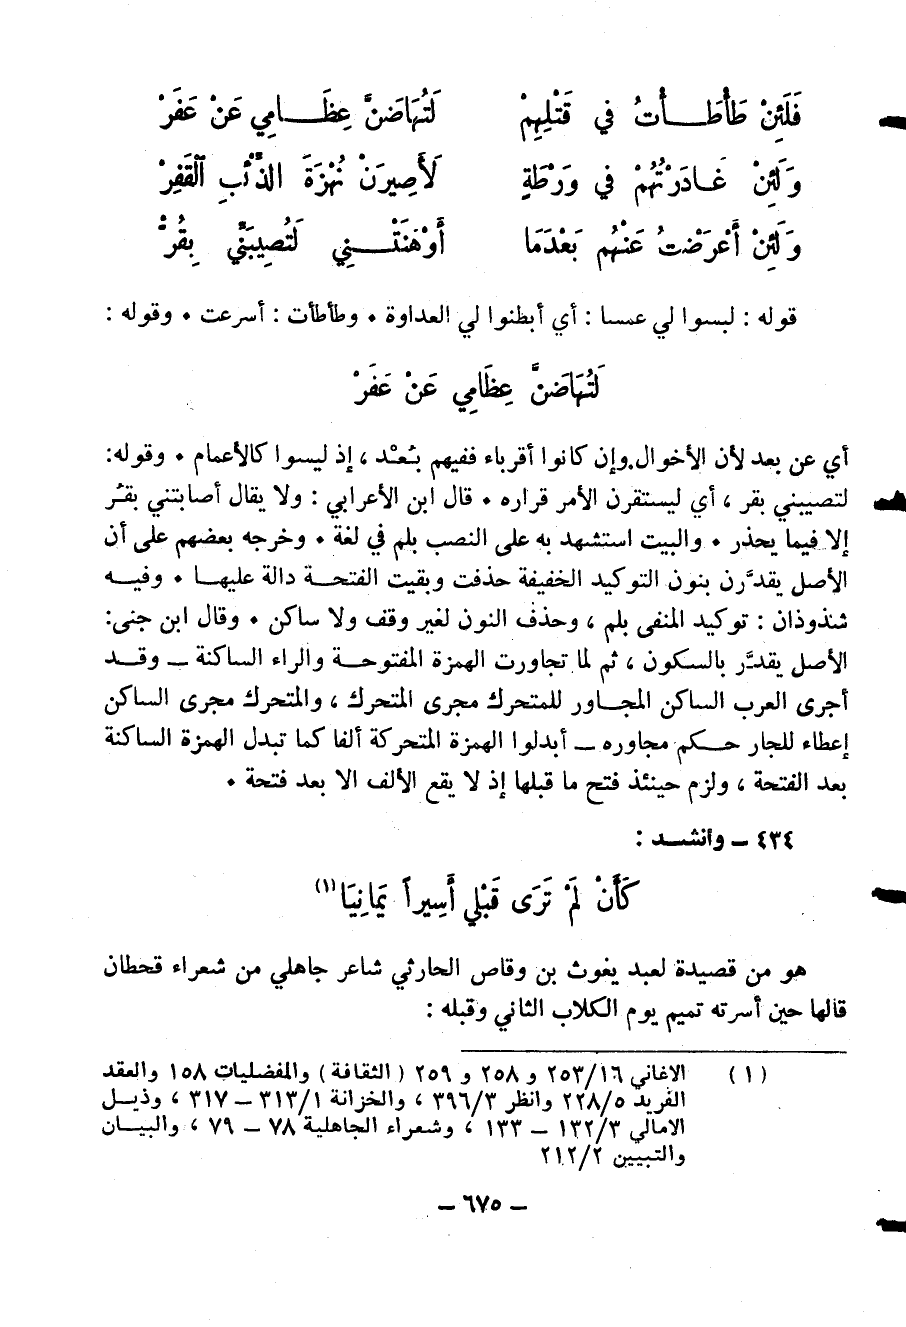 فَلَئِنْ طَأْطَـأْتُ في قَتْلِهِمْ لَتُهَاضَنَّ عِظَـامِي عَنْ عَفَرْ
وَلَئِنْ غَادَرْتُهُمْ في وَرْطَةٍ لَأَصِيرَنْ نُهْزَةَ الذِّئْبِ ٱلْقَفِرْ
وَلَئِنْ أَعْرَضْتُ عَنْهُم بَعْدَمَا أَوْهَنَتْـنِي لَتُصِيبَنِّي بِقُرّْ
قوله : لبسوا لي عمسا : أي أبطنوا لي العداوة • وطأطأت : أسرعت • وقوله :
لَتُهَاضَنَّ عِظَامِي عَنْ عَفَرْ
أي عن بعد لأن الأخوال وإن كانوا أقرباء ففيهم بُعْد ، إذ ليسوا كالأعمام • وقوله:
لتصيبني بقر ، أي ليستقرن الأمر قراره • قال ابن الأعرابي : ولا يقال أصابتني بقُر
إلا فيما يحذر • والبيت استشهد به على النصب بلم في لغة • وخرجه بعضهم على أن
الأصل يقدَّرن بنون التوكيد الخفيفة حذفت وبقيت الفتحـة دالة عليهـا • وفيـه
شذوذان : توكيد المنفى بلم ، وحذف النون لغير وقف ولا ساكن • وقال ابن جنى:
الأصل يقدَّر بالسكون ، ثم لما تجاورت الهمزة المفتوحـة والراء الساكنة ــ وقـد
أجرى العرب الساكن المجـاور للمتحرك مجرى المتحرك ، والمتحرك مجرى الساكن
إعطاء للجار حـكم مجاوره ــ أبدلوا الهمزة المتحركة ألفا كما تبدل الهمزة الساكنة
بعد الفتحة ، ولزم حينئذ فتح ما قبلها إذ لا يقع الألف الا بعد فتحة •
٤٣٤ ــ وأنشـد :
كَأَنْ لَمْ تَرَى قَبْلِي أَسِيراً يَمَانِيَا(١)
هو من قصيدة لعبد يغوث بن وقاص الحارثي شاعر جاهلي من شعراء قحطان
قالها حين أسرته تميم يوم الكلاب الثاني وقبله :
(١) الاغاني ٢٥٣/١٦ و ٢٥٨ و ٢٥٩ (الثقافة) والمفضليات ١٥٨ والعقد
الفريد ٢٢٨/٥ وانظر ٣٩٦/٣ ، والخزانة ٣١٣/١ ــ ٣١٧ ، وذيـل
الامالي ١٣٢/٣ ــ ١٣٣ ، وشعراء الجاهلية ٧٨ ــ ٧٩ ، والبيـان
والتبيين ٢١٢/٢
ــ ٦٧٥ ــ